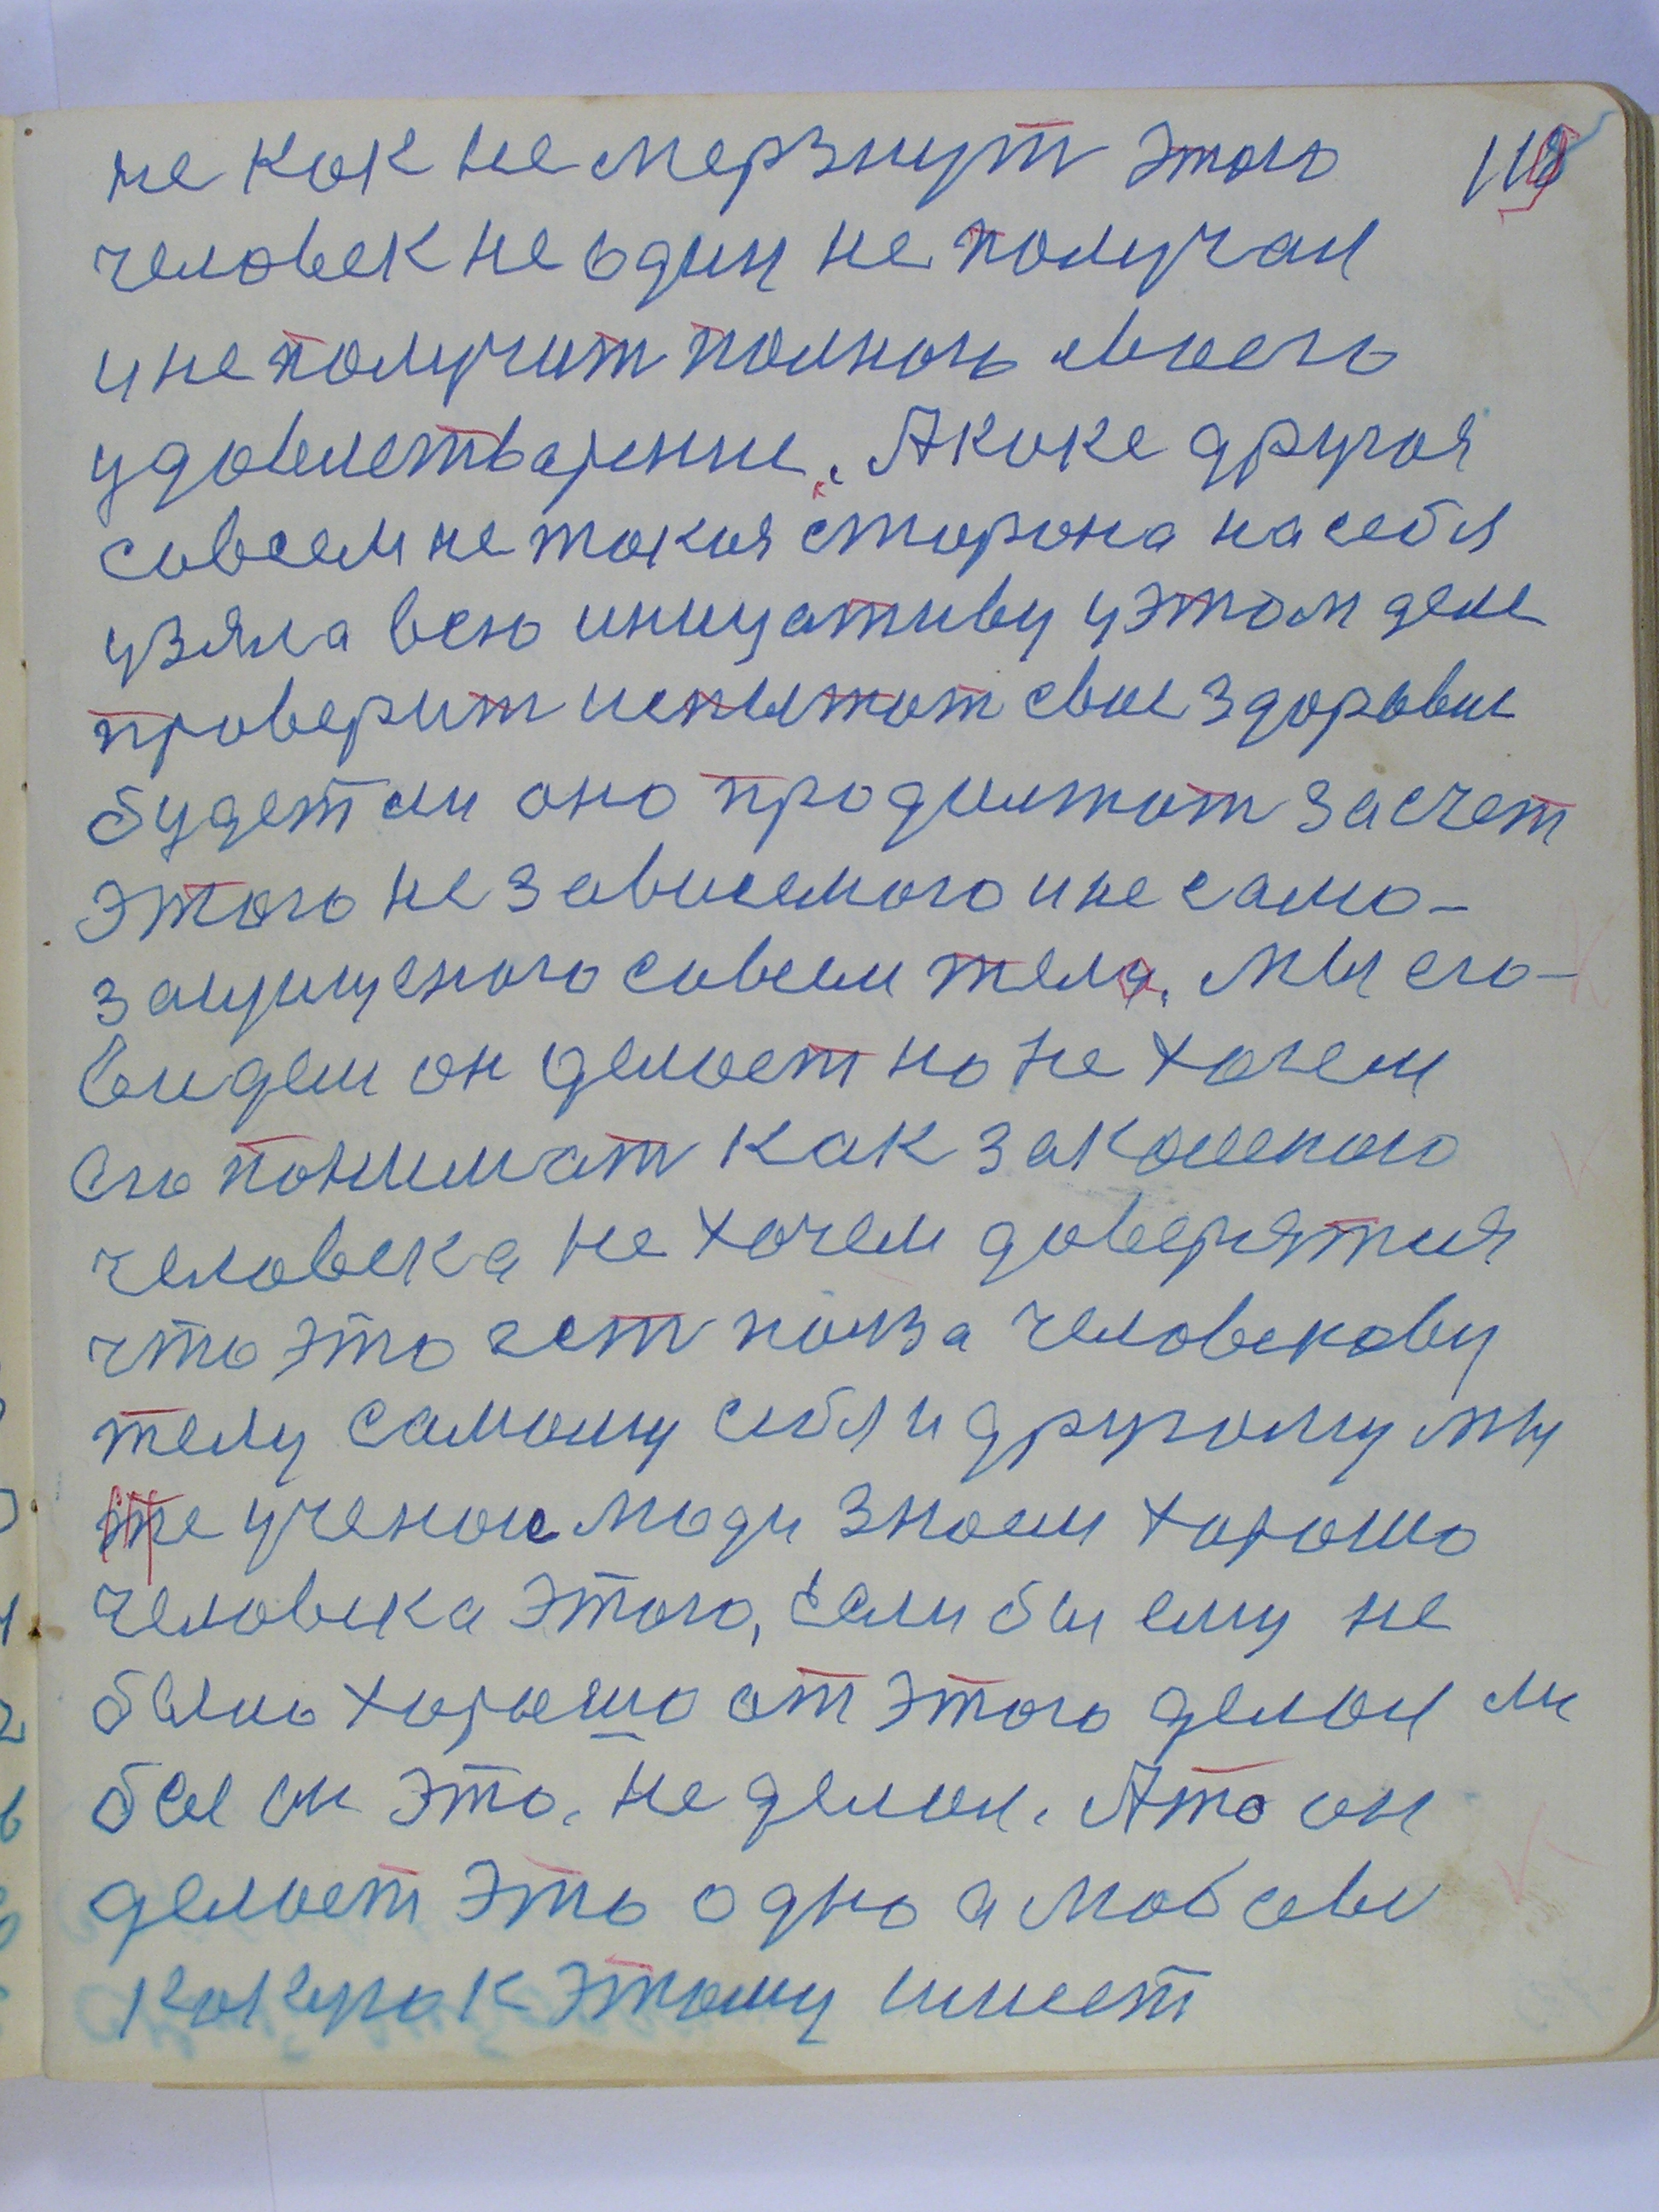 не как не мерзнут этого
человек не один не получал
и не получит полного своего
удовлетварение. А каке другая
совсем не такая сторона на себя
узяла всю инициативу у этом деле
проверит испытат свое здоровье
будет ли оно продилжат за счет
этого не зависемого и не само-
защищеного совсем тела. Мы его
видем он делает но не хочем
его понимат как закаленого
человека не хочем доверятия
что это ест полза человекову
телу самому себя и другому мы
те ученои люди знаем хорошо
человека этого, если бы ему не
было хорошо от этого делал ли
бы он это. не делал. А то он
делает это одно а любове
какую к этому имеет